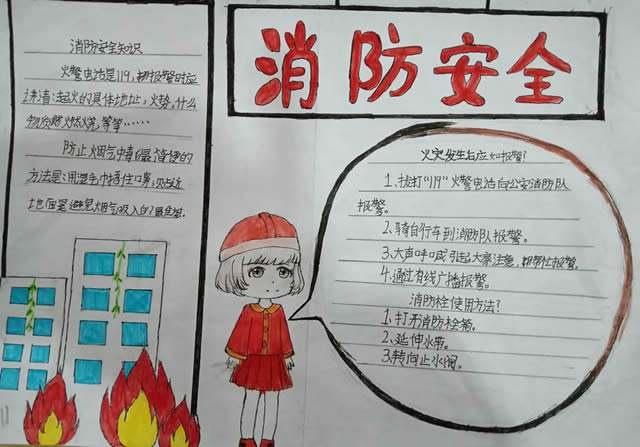 消防安全
消防安全知识
火警电话是119，报警时应
讲清:起火的具体地址，火势，什么
物质燃烧，等等……
防止烟气中毒最简便的
方法是:用湿毛巾捂住口鼻，
地面是避免烟气吸入的
火灾发生后应如报警?
1、拨打"119"火警电话向公安消防队
报警。
2.骑自行车到消防队报警。
3、大声呼喊引起大家注意，帮忙报警。
4.通过有线广播报警。
消防栓使用方法?
1.打开消防栓箱。
2.延伸水带。
3.转向止水阀。